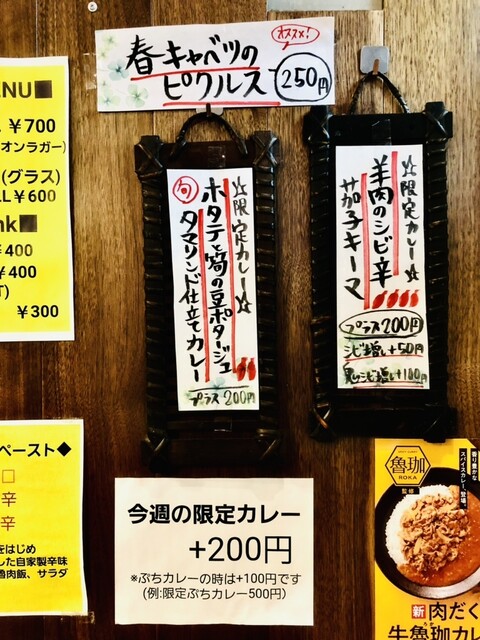 春キャベツの
ピクルス
オススメ!
250円
ENU■
¥700
オンラガー)
(グラス)
LL¥600
nk■
¥400
¥400
T)
¥300
☆限定カレー☆
旬
ホタテと筍の豆ポタージュ
タマリンド仕立てカレー
プラス200円
☆限定カレー☆
羊肉のシビ辛
茄子キーマ
プラス200円
シビ増し+50円
鬼シビ増し+100円
ペースト◆
口
辛
辛
をはじめ
した自家製辛味
魯肉飯、サラダ
今週の限定カレー
+200円
※ぷちカレーの時は+100円です
(例:限定ぷちカレー500円)
魯珈
ROKA
監修
香り豊かな
スパイスカレー、登場。
新 肉だく
牛魯珈カレ